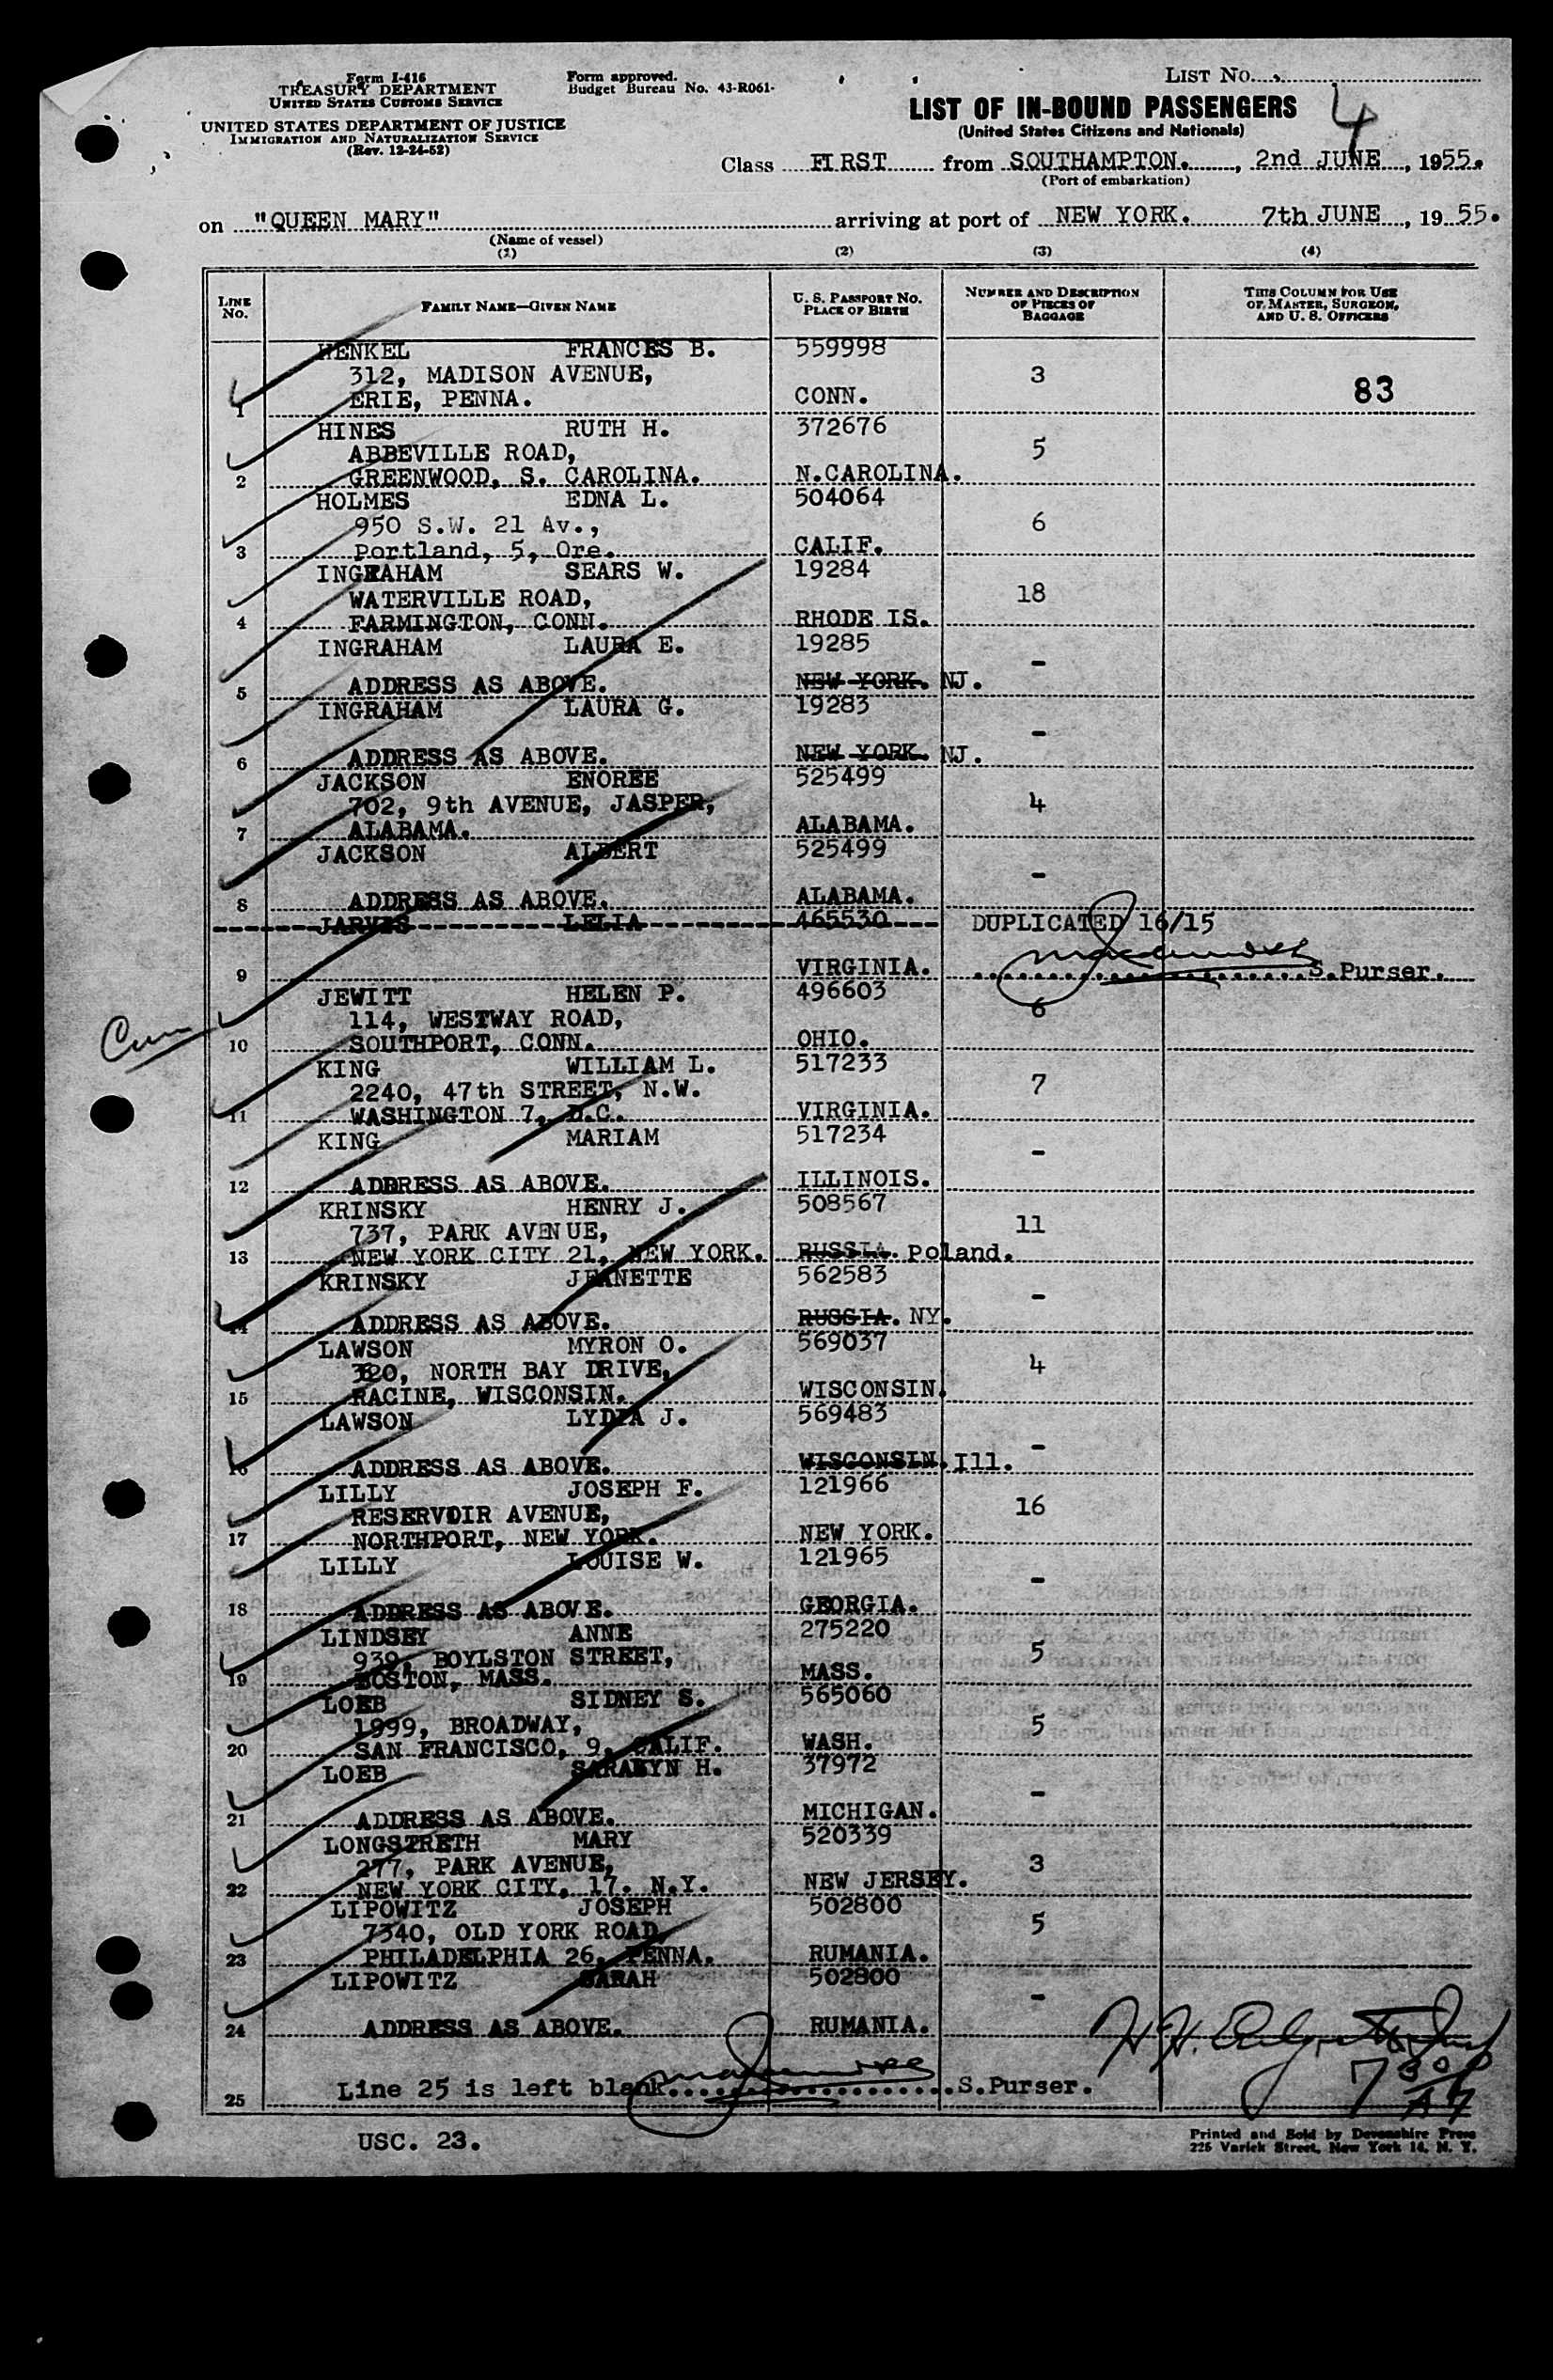 Form I-416
TREASURY DEPARTMENT
UNITED STATES CUSTOMS SERVICE
UNITED STATES DEPARTMENT OF JUSTICE
IMMIGRATION AND NATURALIZATION SERVICE
(Rev. 12-24-52)
Form approved.
Budget Bureau No. 43-R061-
LIST No.
4
LIST OF IN-BOUND PASSENGERS
(United States Citizens and Nationals)
Class FIRST from SOUTHAMPTON., 2nd JUNE, 1955.
(Port of embarkation)
on "QUEEN MARY" arriving at port of NEW YORK. 7th JUNE, 1955.
(Name of vessel)
(1) (2) (3) (4)
LINE No. FAMILY NAME—GIVEN NAME U. S. PASSPORT NO. PLACE OF BIRTH NUMBER AND DESCRIPTION OF PIECES OF BAGGAGE THIS COLUMN FOR USE OF MASTER, SURGEON, AND U. S. OFFICERS
HENKEL FRANCES B. 559998
312, MADISON AVENUE, 3
1 ERIE, PENNA. CONN. 83
HINES RUTH H. 372676
ABBEVILLE ROAD, 5
2 GREENWOOD, S. CAROLINA. N.CAROLINA.
HOLMES EDNA L. 504064
950 S.W. 21 Av., 6
3 Portland, 5, Ore. CALIF.
INGRAHAM SEARS W. 19284
WATERVILLE ROAD, 18
4 FARMINGTON, CONN. RHODE IS.
INGRAHAM LAURA E. 19285
-
5 ADDRESS AS ABOVE. NEW YORK. NJ.
INGRAHAM LAURA G. 19283
-
6 ADDRESS AS ABOVE. NEW YORK. NJ.
JACKSON ENOREE 525499
702, 9th AVENUE, JASPER, 4
7 ALABAMA. ALABAMA.
JACKSON ALBERT 525499
-
8 ADDRESS AS ABOVE. ALABAMA.
JARVIS LELIA 465530 DUPLICATED 16/15
9 VIRGINIA. S.Purser.
JEWITT HELEN P. 496603
114, WESTWAY ROAD, 6
10 SOUTHPORT, CONN. OHIO.
KING WILLIAM L. 517233
2240, 47th STREET, N.W. 7
11 WASHINGTON 7, D.C. VIRGINIA.
KING MARIAM 517234
-
12 ADDRESS AS ABOVE. ILLINOIS.
KRINSKY HENRY J. 508567
737, PARK AVENUE, 11
13 NEW YORK CITY 21, NEW YORK. RUSSIA. Poland.
KRINSKY JEANETTE 562583
-
14 ADDRESS AS ABOVE. RUSSIA. NY.
LAWSON MYRON O. 569037
320, NORTH BAY DRIVE, 4
15 RACINE, WISCONSIN. WISCONSIN.
LAWSON LYDIA J. 569483
-
16 ADDRESS AS ABOVE. WISCONSIN. Ill.
LILLY JOSEPH F. 121966
RESERVOIR AVENUE, 16
17 NORTHPORT, NEW YORK. NEW YORK.
LILLY LOUISE W. 121965
-
18 ADDRESS AS ABOVE. GEORGIA.
LINDSEY ANNE 275220
939, BOYLSTON STREET, 5
19 BOSTON, MASS. MASS.
LOEB SIDNEY S. 565060
1999, BROADWAY, 5
20 SAN FRANCISCO, 9, CALIF. WASH.
LOEB SARALYN H. 37972
-
21 ADDRESS AS ABOVE. MICHIGAN.
LONGSTRETH MARY 520339
277, PARK AVENUE, 3
22 NEW YORK CITY, 17. N.Y. NEW JERSEY.
LIPOWITZ JOSEPH 502800
7340, OLD YORK ROAD, 5
23 PHILADELPHIA 26, PENNA. RUMANIA.
LIPOWITZ SARAH 502800
-
24 ADDRESS AS ABOVE. RUMANIA.
25 Line 25 is left blank. S.Purser.
USC. 23.
Printed and Sold by Devonshire Press
225 Varick Street, New York 14, N. Y.